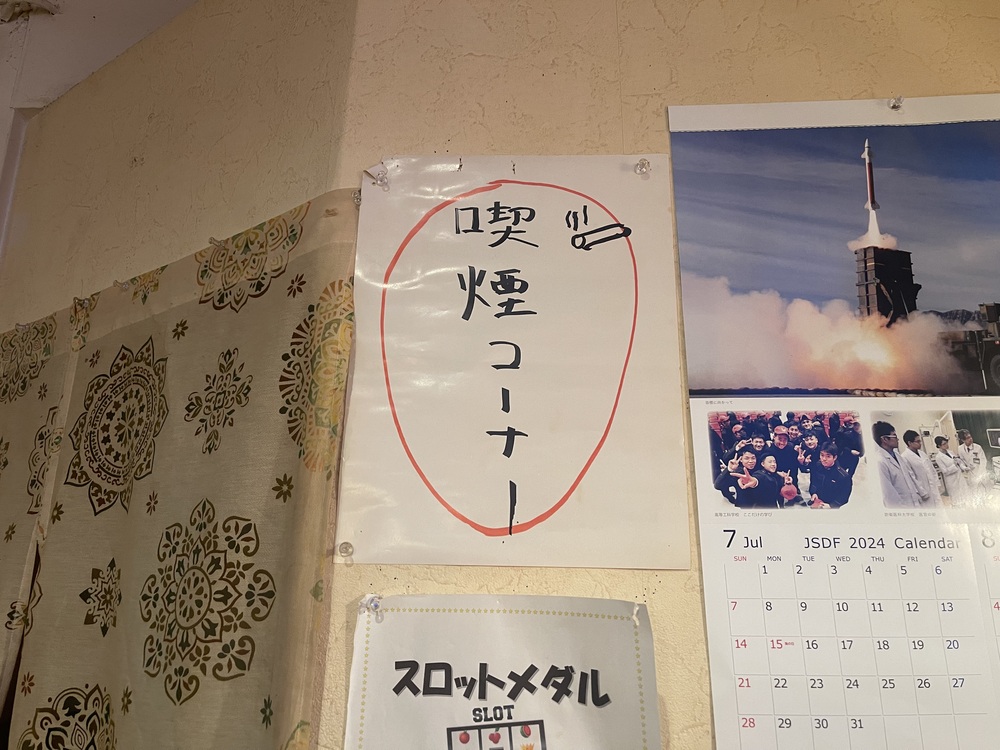 喫煙コーナー
スロットメダル
SLOT
7 Jul JSDF 2024 Calendar 8
SUN MON TUE WED THU FRI SAT
1 2 3 4 5 6
7 8 9 10 11 12 13
14 15 16 17 18 19 20
21 22 23 24 25 26 27
28 29 30 31
4